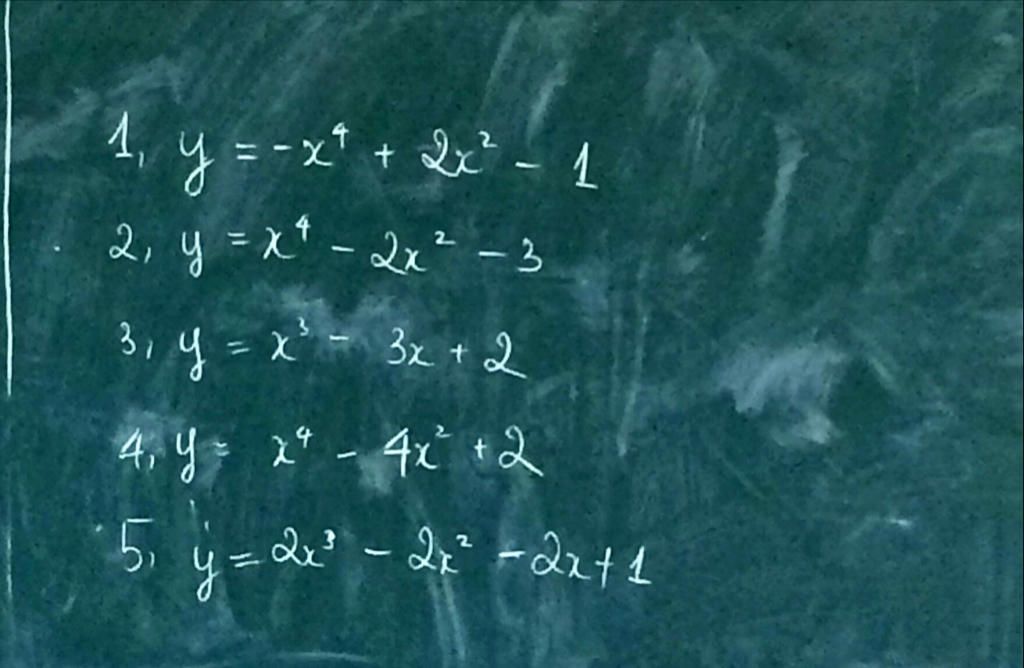 1, y = -x⁴ + 2x² - 1
2, y = x⁴ - 2x² - 3
3, y = x³ - 3x + 2
4, y = x⁴ - 4x² + 2
5, y = 2x³ - 2x² - 2x + 1